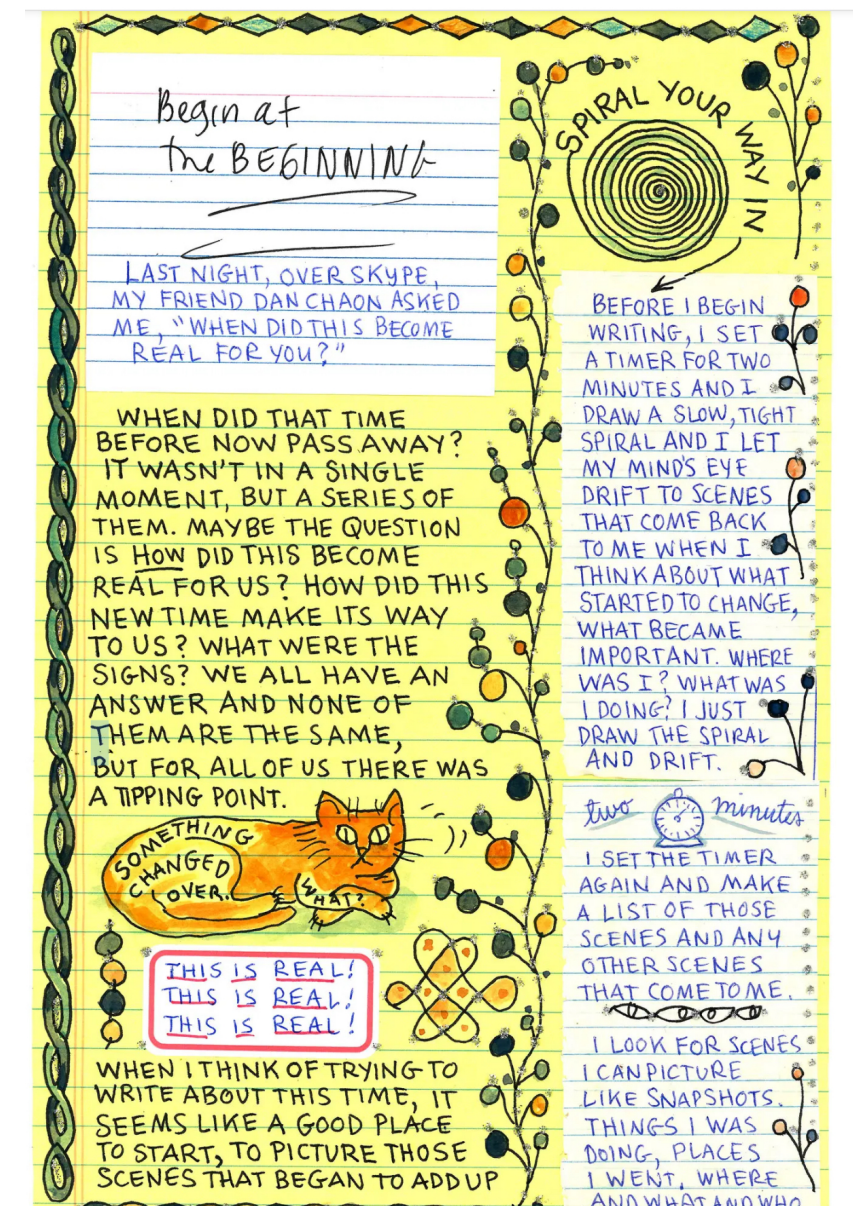 Begin at
the BEGINNING
LAST NIGHT, OVER SKYPE,
MY FRIEND DAN CHAON ASKED
ME, "WHEN DID THIS BECOME
REAL FOR YOU?"
WHEN DID THAT TIME
BEFORE NOW PASS AWAY?
IT WASN'T IN A SINGLE
MOMENT, BUT A SERIES OF
THEM. MAYBE THE QUESTION
IS HOW DID THIS BECOME
REAL FOR US? HOW DID THIS
NEW TIME MAKE ITS WAY
TO US? WHAT WERE THE
SIGNS? WE ALL HAVE AN
ANSWER AND NONE OF
THEM ARE THE SAME,
BUT FOR ALL OF US THERE WAS
A TIPPING POINT.
SOMETHING
CHANGED
OVER.
WHAT?
THIS IS REAL!
THIS IS REAL!
THIS IS REAL!
WHEN I THINK OF TRYING TO
WRITE ABOUT THIS TIME, IT
SEEMS LIKE A GOOD PLACE
TO START, TO PICTURE THOSE
SCENES THAT BEGAN TO ADD UP
SPIRAL YOUR WAY IN
BEFORE I BEGIN
WRITING, I SET
A TIMER FOR TWO
MINUTES AND I
DRAW A SLOW, TIGHT
SPIRAL AND I LET
MY MIND'S EYE
DRIFT TO SCENES
THAT COME BACK
TO ME WHEN I
THINK ABOUT WHAT
STARTED TO CHANGE,
WHAT BECAME
IMPORTANT. WHERE
WAS I? WHAT WAS
I DOING? I JUST
DRAW THE SPIRAL
AND DRIFT.
two minutes
I SET THE TIMER
AGAIN AND MAKE
A LIST OF THOSE
SCENES AND ANY
OTHER SCENES
THAT COME TO ME.
I LOOK FOR SCENES
I CAN PICTURE
LIKE SNAPSHOTS.
THINGS I WAS
DOING, PLACES
I WENT, WHERE
AND WHAT AND WHO